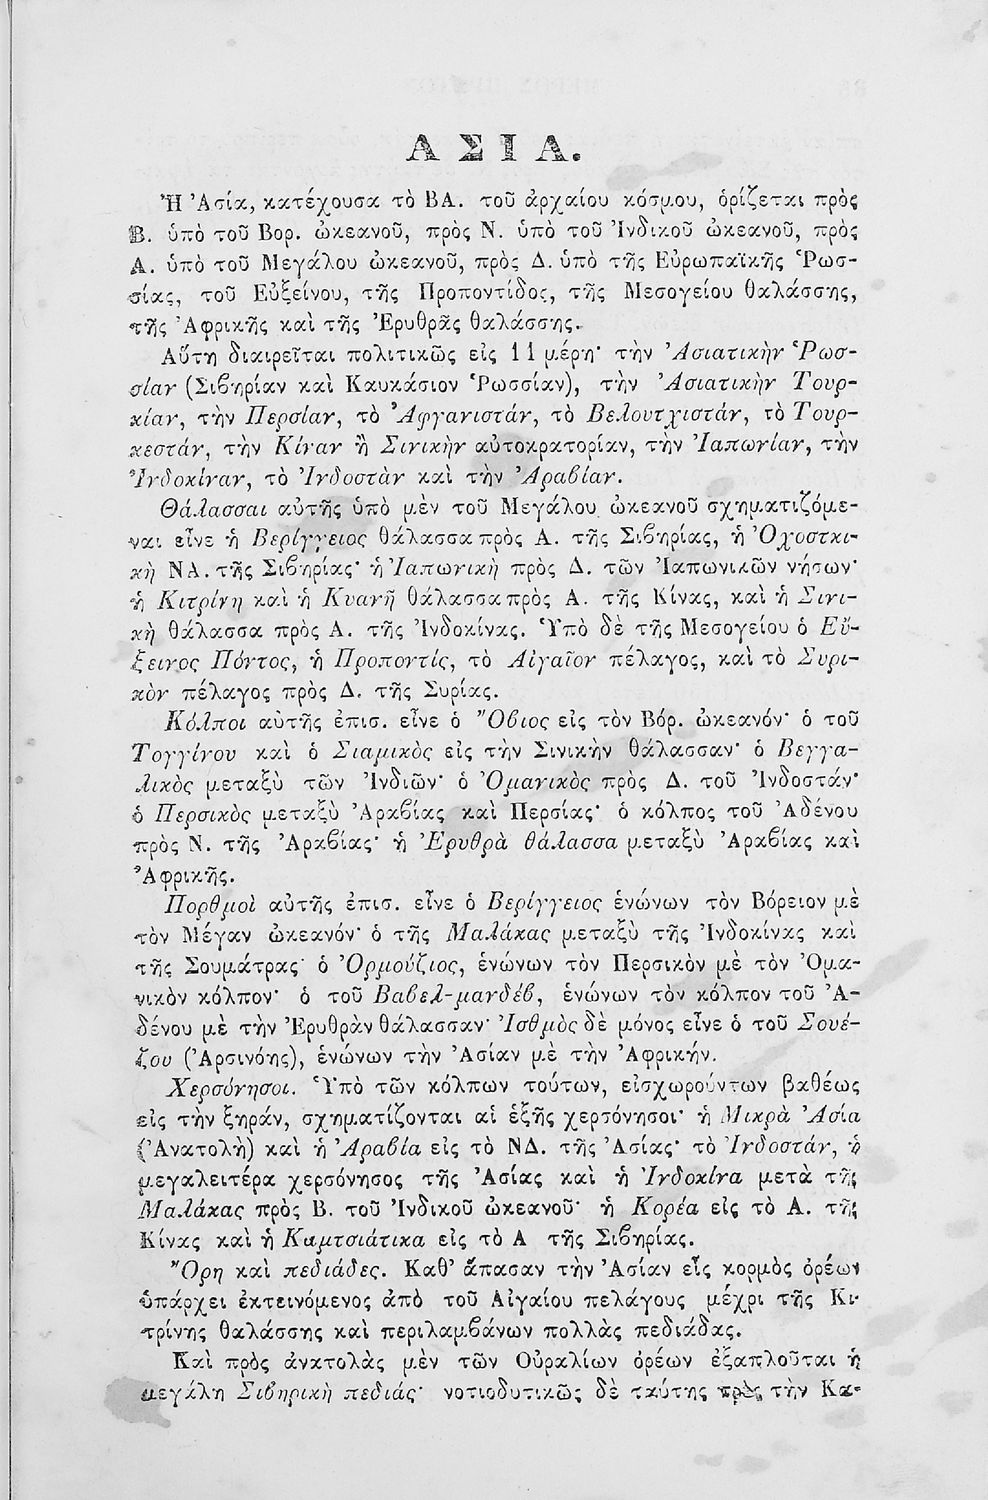 ΑΣΙΑ.
Ἡ Ἀσία, κατέχουσα τὸ ΒΑ. τοῦ ἀρχαίου κόσμου, ὁρίζεται πρὸς
Β. ὑπὸ τοῦ Βορ. ὠκεανοῦ, πρὸς Ν. ὑπὸ τοῦ Ἰνδικοῦ ὠκεανοῦ, πρὸς
Α. ὑπὸ τοῦ Μεγάλου ὠκεανοῦ, πρὸς Δ. ὑπὸ τῆς Εὐρωπαϊκῆς Ῥωσ-
σίας, τοῦ Εὐξείνου, τῆς Προποντίδος, τῆς Μεσογείου θαλάσσης,
τῆς Ἀφρικῆς καὶ τῆς Ἐρυθρᾶς θαλάσσης.
Αὕτη διαιρεῖται πολιτικῶς εἰς 11 μέρη· τὴν Ἀσιατικὴν Ῥωσ-
σίαν (Σιβηρίαν καὶ Καυκάσιον Ῥωσσίαν), τὴν Ἀσιατικὴν Τουρ-
κίαν, τὴν Περσίαν, τὸ Ἀφγανιστάν, τὸ Βελουτχιστάν, τὸ Τουρ-
κεστάν, τὴν Κίναν ἢ Σινικὴν αὐτοκρατορίαν, τὴν Ἰαπωνίαν, τὴν
Ἰνδοκίναν, τὸ Ἰνδοστὰν καὶ τὴν Ἀραβίαν.
Θάλασσαι αὐτῆς ὑπὸ μὲν τοῦ Μεγάλου ὠκεανοῦ σχηματιζόμε-
ναι εἶνε ἡ Βερίγγειος θάλασσα πρὸς Α. τῆς Σιβηρίας, ἡ Ὀχοστκι-
κὴ ΝΑ. τῆς Σιβηρίας· ἡ Ἰαπωνικὴ πρὸς Δ. τῶν Ἰαπωνικῶν νήσων·
ἡ Κιτρίνη καὶ ἡ Κυανῆ θάλασσα πρὸς Α. τῆς Κίνας, καὶ ἡ Σινι-
κὴ θάλασσα πρὸς Α. τῆς Ἰνδοκίνας. Ὑπὸ δὲ τῆς Μεσογείου ὁ Εὔ-
ξεινος Πόντος, ἡ Προποντίς, τὸ Αἰγαῖον πέλαγος, καὶ τὸ Συρι-
κὸν πέλαγος πρὸς Δ. τῆς Συρίας.
Κόλποι αὐτῆς ἐπισ. εἶνε ὁ Ὄβιος εἰς τὸν Βόρ. ὠκεανόν· ὁ τοῦ
Τογγίνου καὶ ὁ Σιαμικὸς εἰς τὴν Σινικὴν θάλασσαν· ὁ Βεγγα-
λικὸς μεταξὺ τῶν Ἰνδιῶν· ὁ Ὀμανικὸς πρὸς Δ. τοῦ Ἰνδοστάν·
ὁ Περσικὸς μεταξὺ Ἀραβίας καὶ Περσίας· ὁ κόλπος τοῦ Ἀδένου
πρὸς Ν. τῆς Ἀραβίας· ἡ Ἐρυθρὰ θάλασσα μεταξὺ Ἀραβίας καὶ
Ἀφρικῆς.
Πορθμοὶ αὐτῆς ἐπισ. εἶνε ὁ Βερίγγειος ἑνώνων τὸν Βόρειον μὲ
τὸν Μέγαν ὠκεανόν· ὁ τῆς Μαλάκας μεταξὺ τῆς Ἰνδοκίνας καὶ
τῆς Σουμάτρας· ὁ Ὁρμούζιος, ἑνώνων τὸν Περσικὸν μὲ τὸν Ὀμα-
νικὸν κόλπον· ὁ τοῦ Βαβελ-μανδέβ, ἑνώνων τὸν κόλπον τοῦ Ἀ-
δένου μὲ τὴν Ἐρυθρὰν θάλασσαν· Ἰσθμὸς δὲ μόνος εἶνε ὁ τοῦ Σουέ-
ζου (Ἀρσινόης), ἑνώνων τὴν Ἀσίαν μὲ τὴν Ἀφρικήν.
Χερσόνησοι. Ὑπὸ τῶν κόλπων τούτων, εἰσχωρούντων βαθέως
εἰς τὴν ξηράν, σχηματίζονται αἱ ἑξῆς χερσόνησοι· ἡ Μικρὰ Ἀσία
(Ἀνατολὴ) καὶ ἡ Ἀραβία εἰς τὸ ΝΔ. τῆς Ἀσίας· τὸ Ἰνδοστάν, ἡ
μεγαλειτέρα χερσόνησος τῆς Ἀσίας καὶ ἡ Ἰνδοκίνα μετὰ τῆς
Μαλάκας πρὸς Β. τοῦ Ἰνδικοῦ ὠκεανοῦ· ἡ Κορέα εἰς τὸ Α. τῆς
Κίνας καὶ ἡ Καμτσιάτικα εἰς τὸ Α τῆς Σιβηρίας.
Ὄρη καὶ πεδιάδες. Καθ’ ἅπασαν τὴν Ἀσίαν εἷς κορμὸς ὀρέων
ὑπάρχει ἐκτεινόμενος ἀπὸ τοῦ Αἰγαίου πελάγους μέχρι τῆς Κι-
τρίνης θαλάσσης καὶ περιλαμβάνων πολλὰς πεδιάδας.
Καὶ πρὸς ἀνατολὰς μὲν τῶν Οὐραλίων ὀρέων ἐξαπλοῦται ἡ
μεγάλη Σιβηρικὴ πεδιάς· νοτιοδυτικῶς δὲ ταύτης πρὸς τὴν Κα-